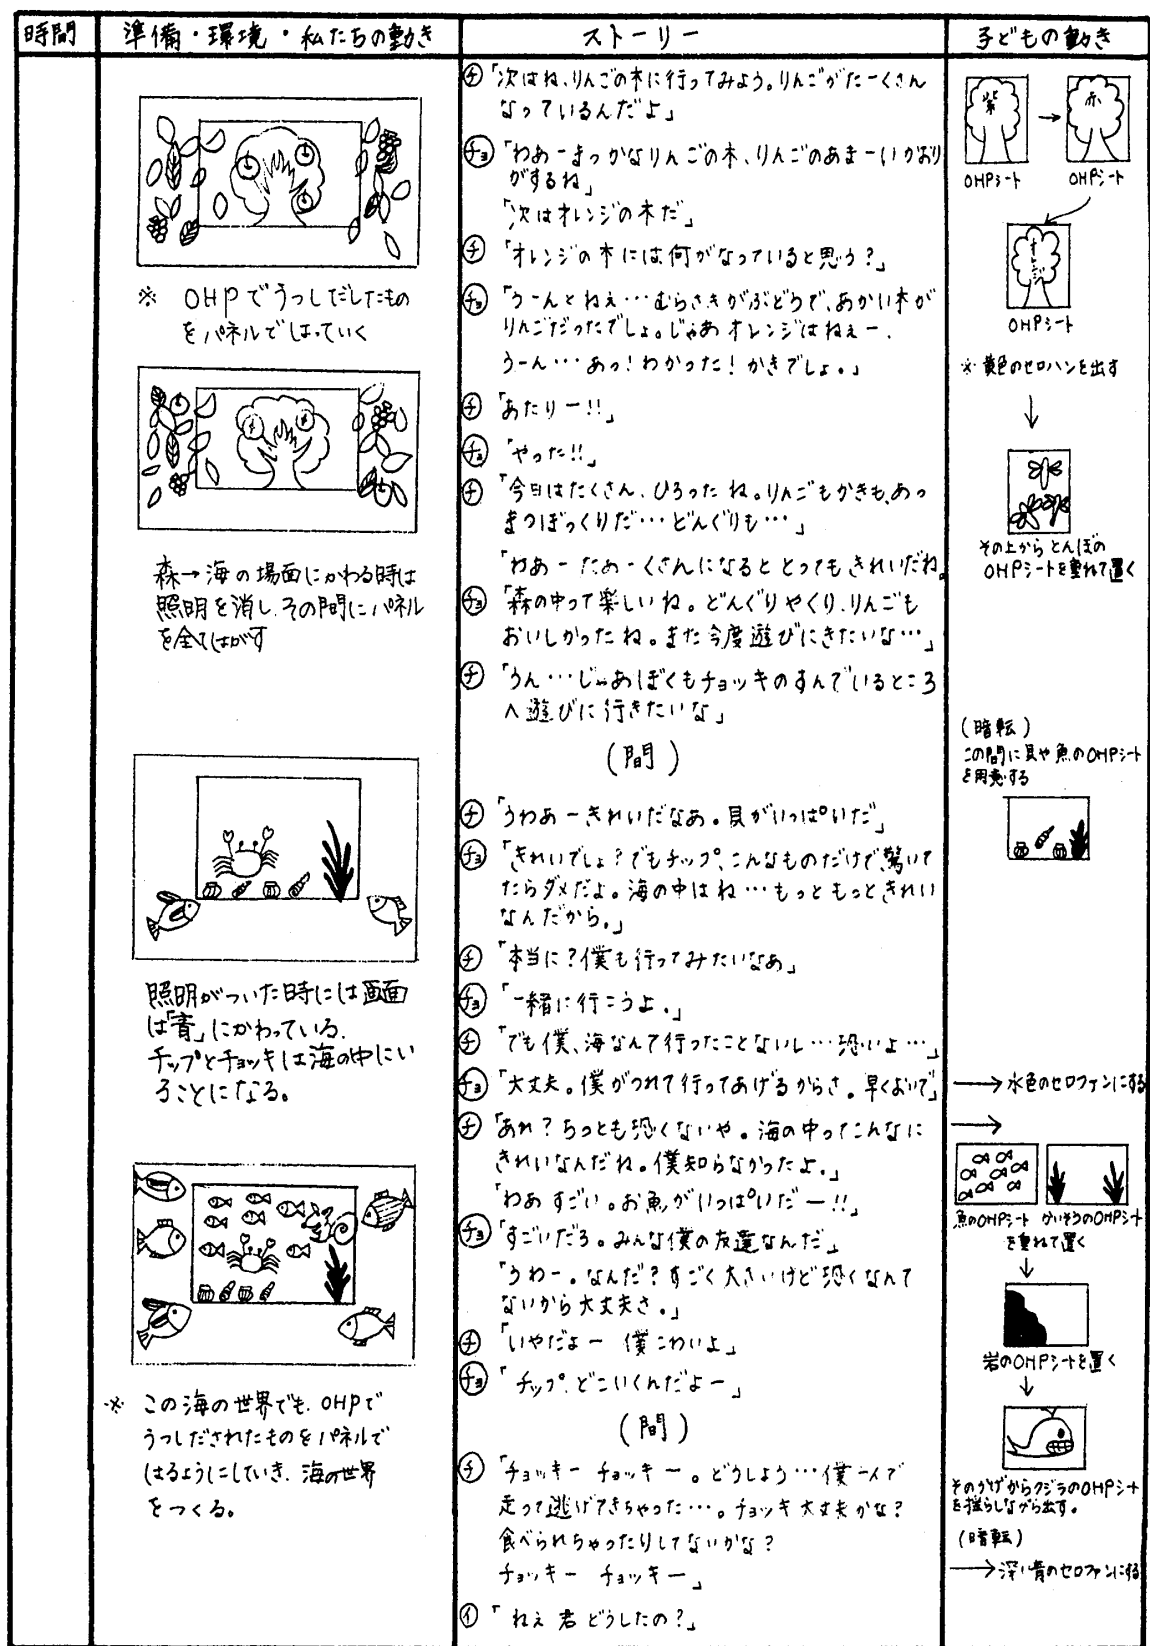 時間
準備・環境・私たちの動き
ストーリー
子どもの動き
※ OHPでうつしだしたもの
をパネルではっていく
森→海の場面にかわる時は
照明を消し、その間にパネル
を全てはがす
照明がついた時には画面
は「青」にかわっている。
チップとチョッキは海の中にい
ることになる。
※ この海の世界でも、OHPで
うつしだされたものをパネルで
はるようにしていき、海の世界
をつくる。
チ「次はね、りんごの木に行ってみよう。りんごがたーくさん
なっているんだよ」
チョ「わあーまっかなりんごの木、りんごのあまーいかおり
がするね」
「次はオレンジの木だ」
チ「オレンジの木には何がなっていると思う?」
チョ「うーんとねぇ…むらさきがぶどうで、あかい木が
りんごだったでしょ。じゃあオレンジはねぇー、
うーん…あっ!わかった!かきでしょ。」
チ「あたりー!!」
チョ「やった!!」
チ「今日はたくさん、ひろったね。りんごもかきも、あっ
まつぼっくりだ…どんぐりも…」
「わあーたあーくさんになるととってもきれいだね。
チョ「森の中って楽しいね。どんぐりやくり、りんごも
おいしかったね。また今度遊びにきたいな…」
チ「うん…じゃあぼくもチョッキのすんでいるところ
へ遊びに行きたいな」
(間)
チ「うわあーきれいだなあ。貝がいっぱいだ」
チョ「きれいでしょ?でもチップ、こんなものだけで、驚いて
たらダメだよ。海の中はね…もっともっときれい
なんだから。」
チ「本当に?僕も行ってみたいなあ」
チョ「一緒に行こうよ。」
チ「でも僕、海なんて行ったことないし…恐いよ…」
チョ「大丈夫。僕がつれて行ってあげるからさ。早くおいで」
チ「あれ?ちっとも恐くないや。海の中ってこんなに
きれいなんだね。僕知らなかったよ。」
「わあ すごい。お魚がいっぱいだー!!」
チョ「すごいだろ。みんな僕の友達なんだ」
「うわー。なんだ?すごく大きいけど恐くなんて
ないから大丈夫さ。」
チ「いやだよー 僕こわいよ」
チョ「チップ、どこいくんだよー」
(間)
チ「チョッキー チョッキー。どうしよう…僕一人で
走って逃げてきちゃった…。チョッキ大丈夫かな?
食べられちゃったりしてないかな?
チョッキー チョッキー」
イ「ねぇ 君どうしたの?」
紫
→
赤
OHPシート
OHPシート
オレンジ
OHPシート
※黄色のセロハンを出す
↓
その上からとんぼの
OHPシートを重ねて置く
(暗転)
この間に貝や魚のOHPシート
を用意する
→水色のセロファンにする
→
魚のOHPシート かいそうのOHPシート
を重ねて置く
↓
岩のOHPシートを置く
↓
そのかげからクジラのOHPシート
を揺らしながら出す。
(暗転)
→深い青のセロファンにする